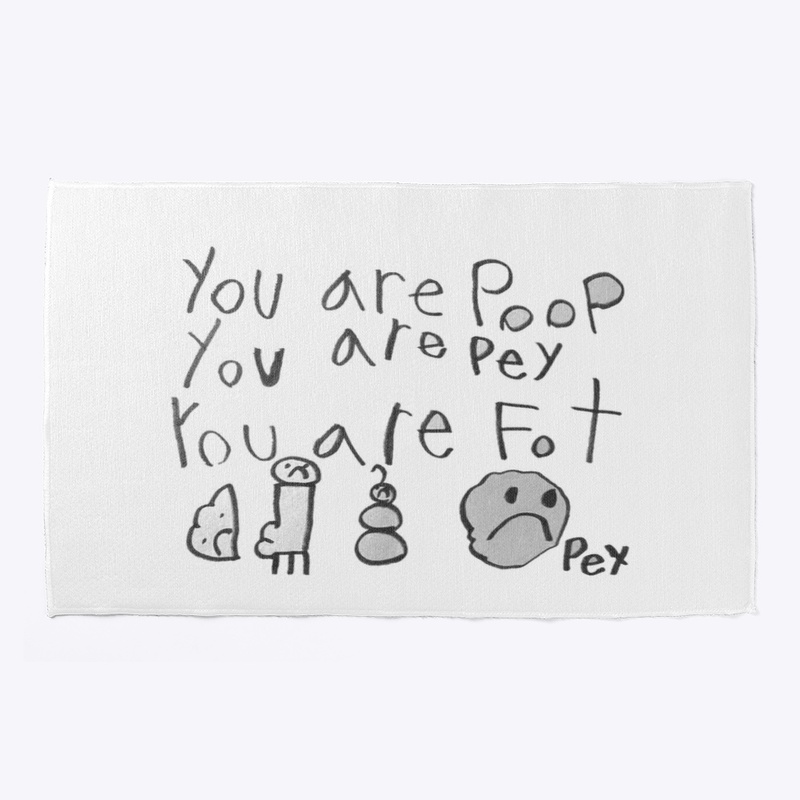 You are Poop
You are Pey
You are Fot
Pey